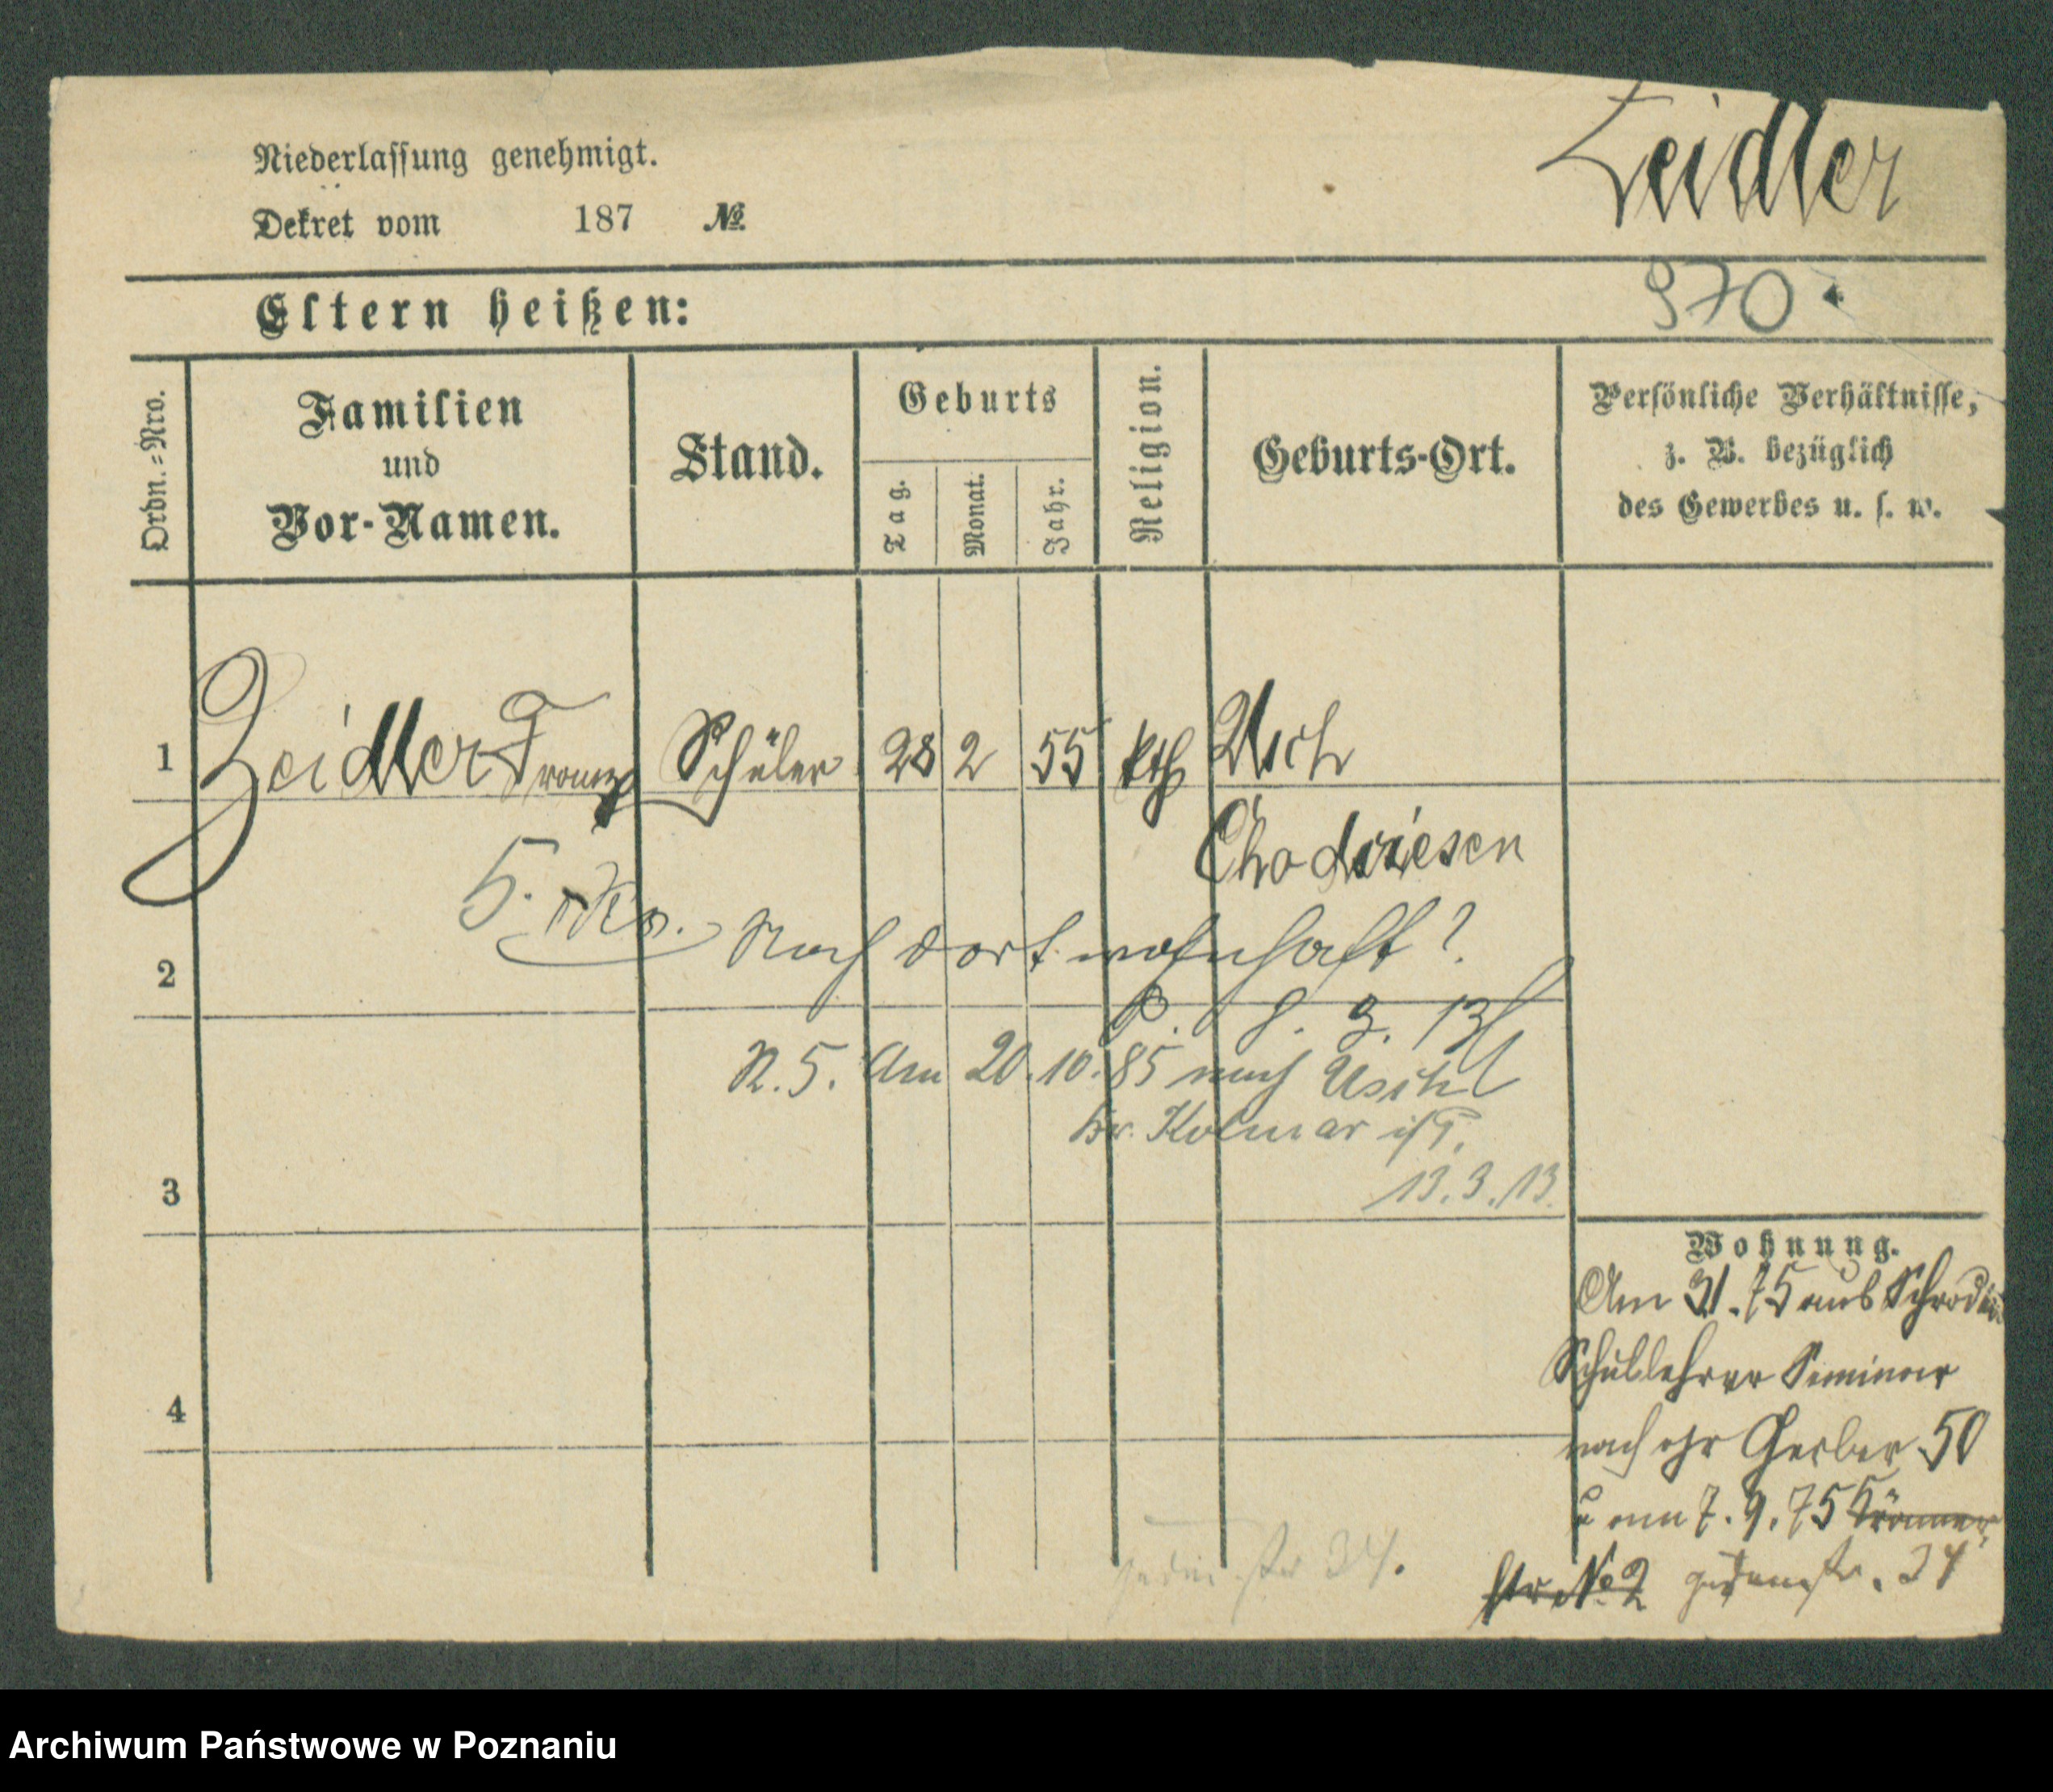 Zeidler
Niederlassung genehmigt.
Dekret vom 187 №
970.
Eltern heißen:
Ordn.=Nro.
Familien
und
Vor-Namen.
Stand.
Geburts
Tag.
Monat.
Jahr.
Religion.
Geburts-Ort.
Persönliche Verhältnisse,
z. B. bezüglich
des Gewerbes u. s. w.
1 Zeidler Franz Schüler 28 2 55 kth Usch
Chodziesen
5.
Noch dort wohnhaft?
2
P. 8. 3. 13
R. 5. Am 20.10.85 nach Usch
Kr. Kolmar i/P.
13.3.13.
3
Wohnung.
Am 3.1.75 aus
Schullehrer Seminar
nach Gerber 50
u am 7.9.75 Krämer
str № 2 34
4
str 34.
Archiwum Państwowe w Poznaniu